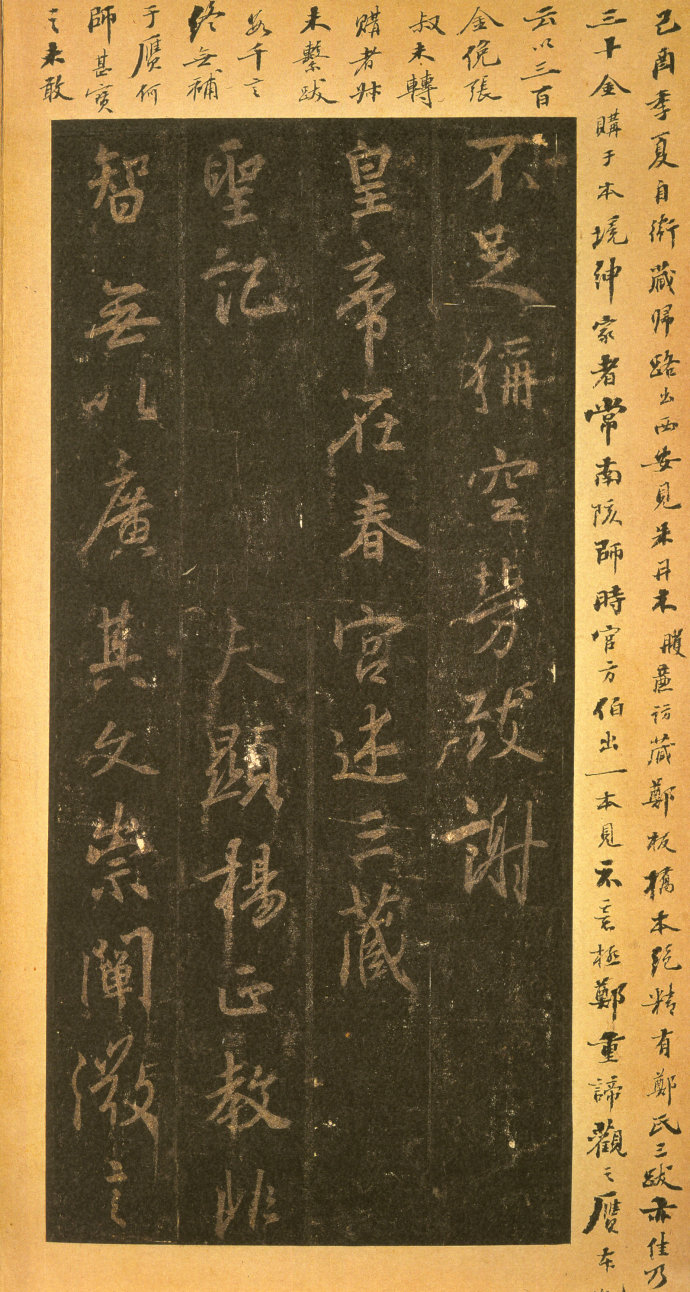 己酉季夏自衛藏歸路出西安見朱丹木臒廉訪藏鄭板橋本絕精有鄭氏三跋亦佳乃
三千金購于本境紳家者常南陔師時官方伯出一本見示意極鄭重諦觀之贗本
云以三百
金俛張
叔未轉
購者叔
未繫跋
數千言
終無補
于贗何
師甚寶
之未敢
不足稱空勞致謝
皇帝在春宮述三藏
聖記 夫顯揚正教非
智無以廣其文崇闡微言